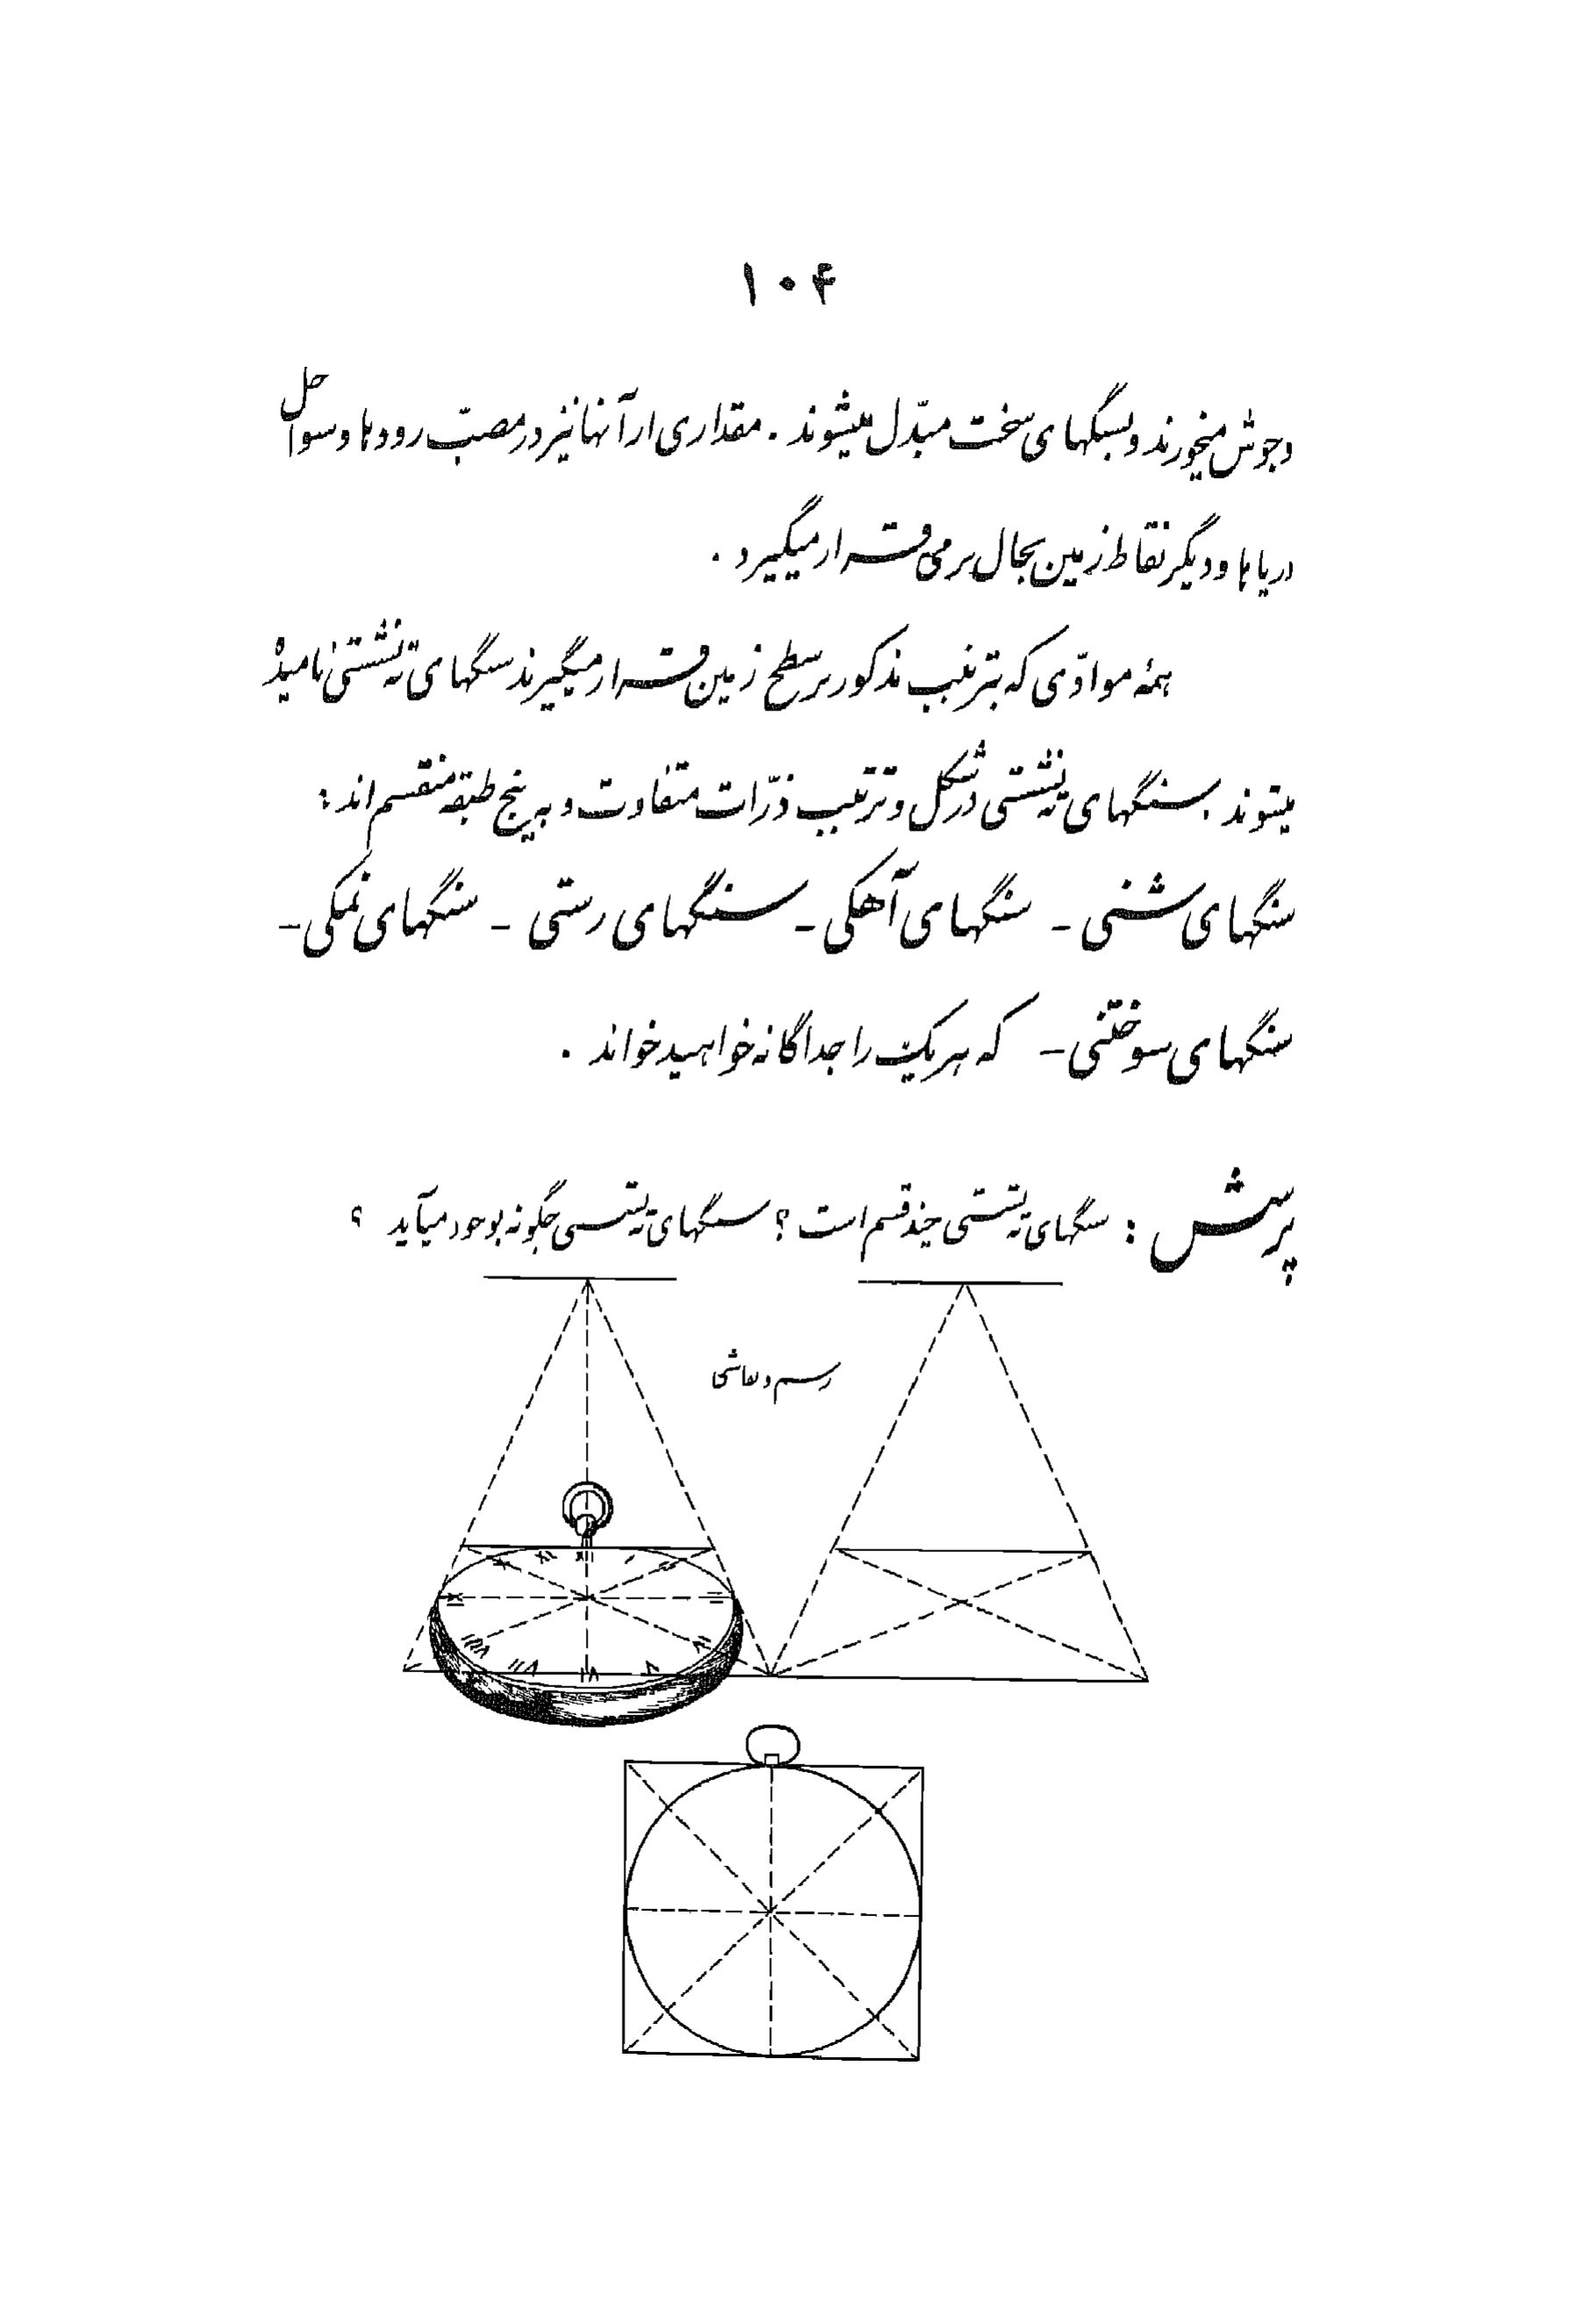 ۱۰۴
وجوش میخورند و بسنگهای سخت مبدّل میشوند . مقداری از آنها نیز در مصبّ رودها و سواحل
دریاها و دیگر نقاط زمین بحال نرمی قرار میگیرد .
همهٔ موادّی که بترتیب مذکور بر سطح زمین قرار میگیرند سنگهای ته‌نشستی نامیده
میشوند . سنگهای ته‌نشستی در شکل و ترتیب ذرّات متفاوت و به پنج طبقه منقسم‌اند :
سنگهای شنی - سنگهای آهکی - سنگهای رستی - سنگهای نمکی -
سنگهای سوختنی - که هر یک را جداگانه خواهید خواند .
پرسش : سنگهای ته‌نشستی چند قسم است ؟ سنگهای ته‌نشستی چگونه بوجود میآید ؟
رسم و نقاشی
XII I II III IV V VI VII VIII IX X XI